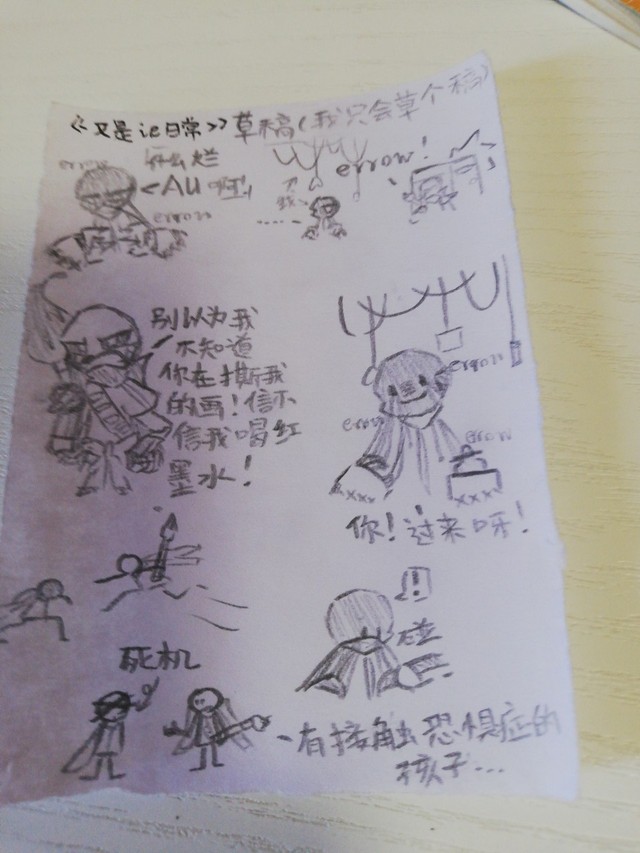 《又是ie日常》草稿(我只会草个稿)
error
什么烂
AU啊!
error
error!
……
别认为我
不知道
你在撕我
的画!信不
信我喝红
墨水!
error
error
error
xxx
xxx
你!过来呀!
!
碰
死机
有接触恐惧症的
孩子...